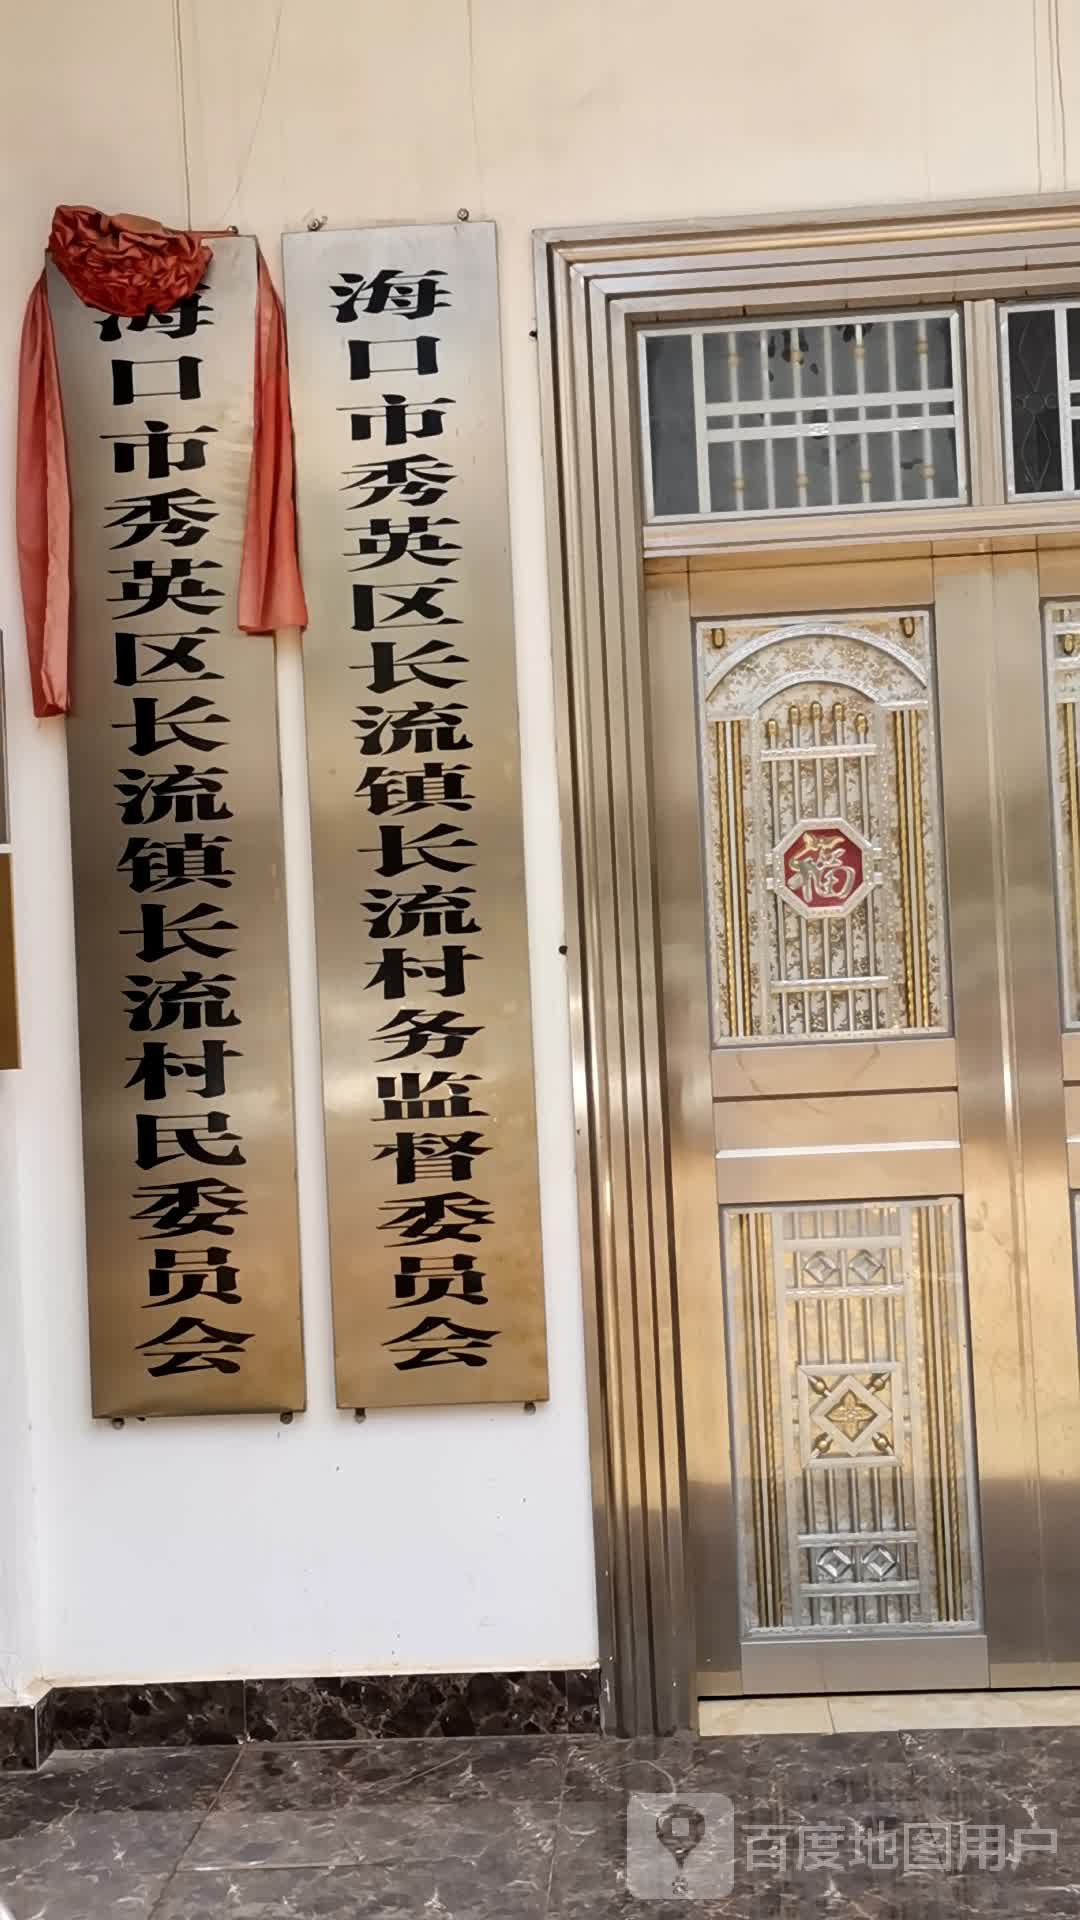 海口市秀英区长流镇长流村民委员会
海口市秀英区长流镇长流村务监督委员会
福
百度地图用户